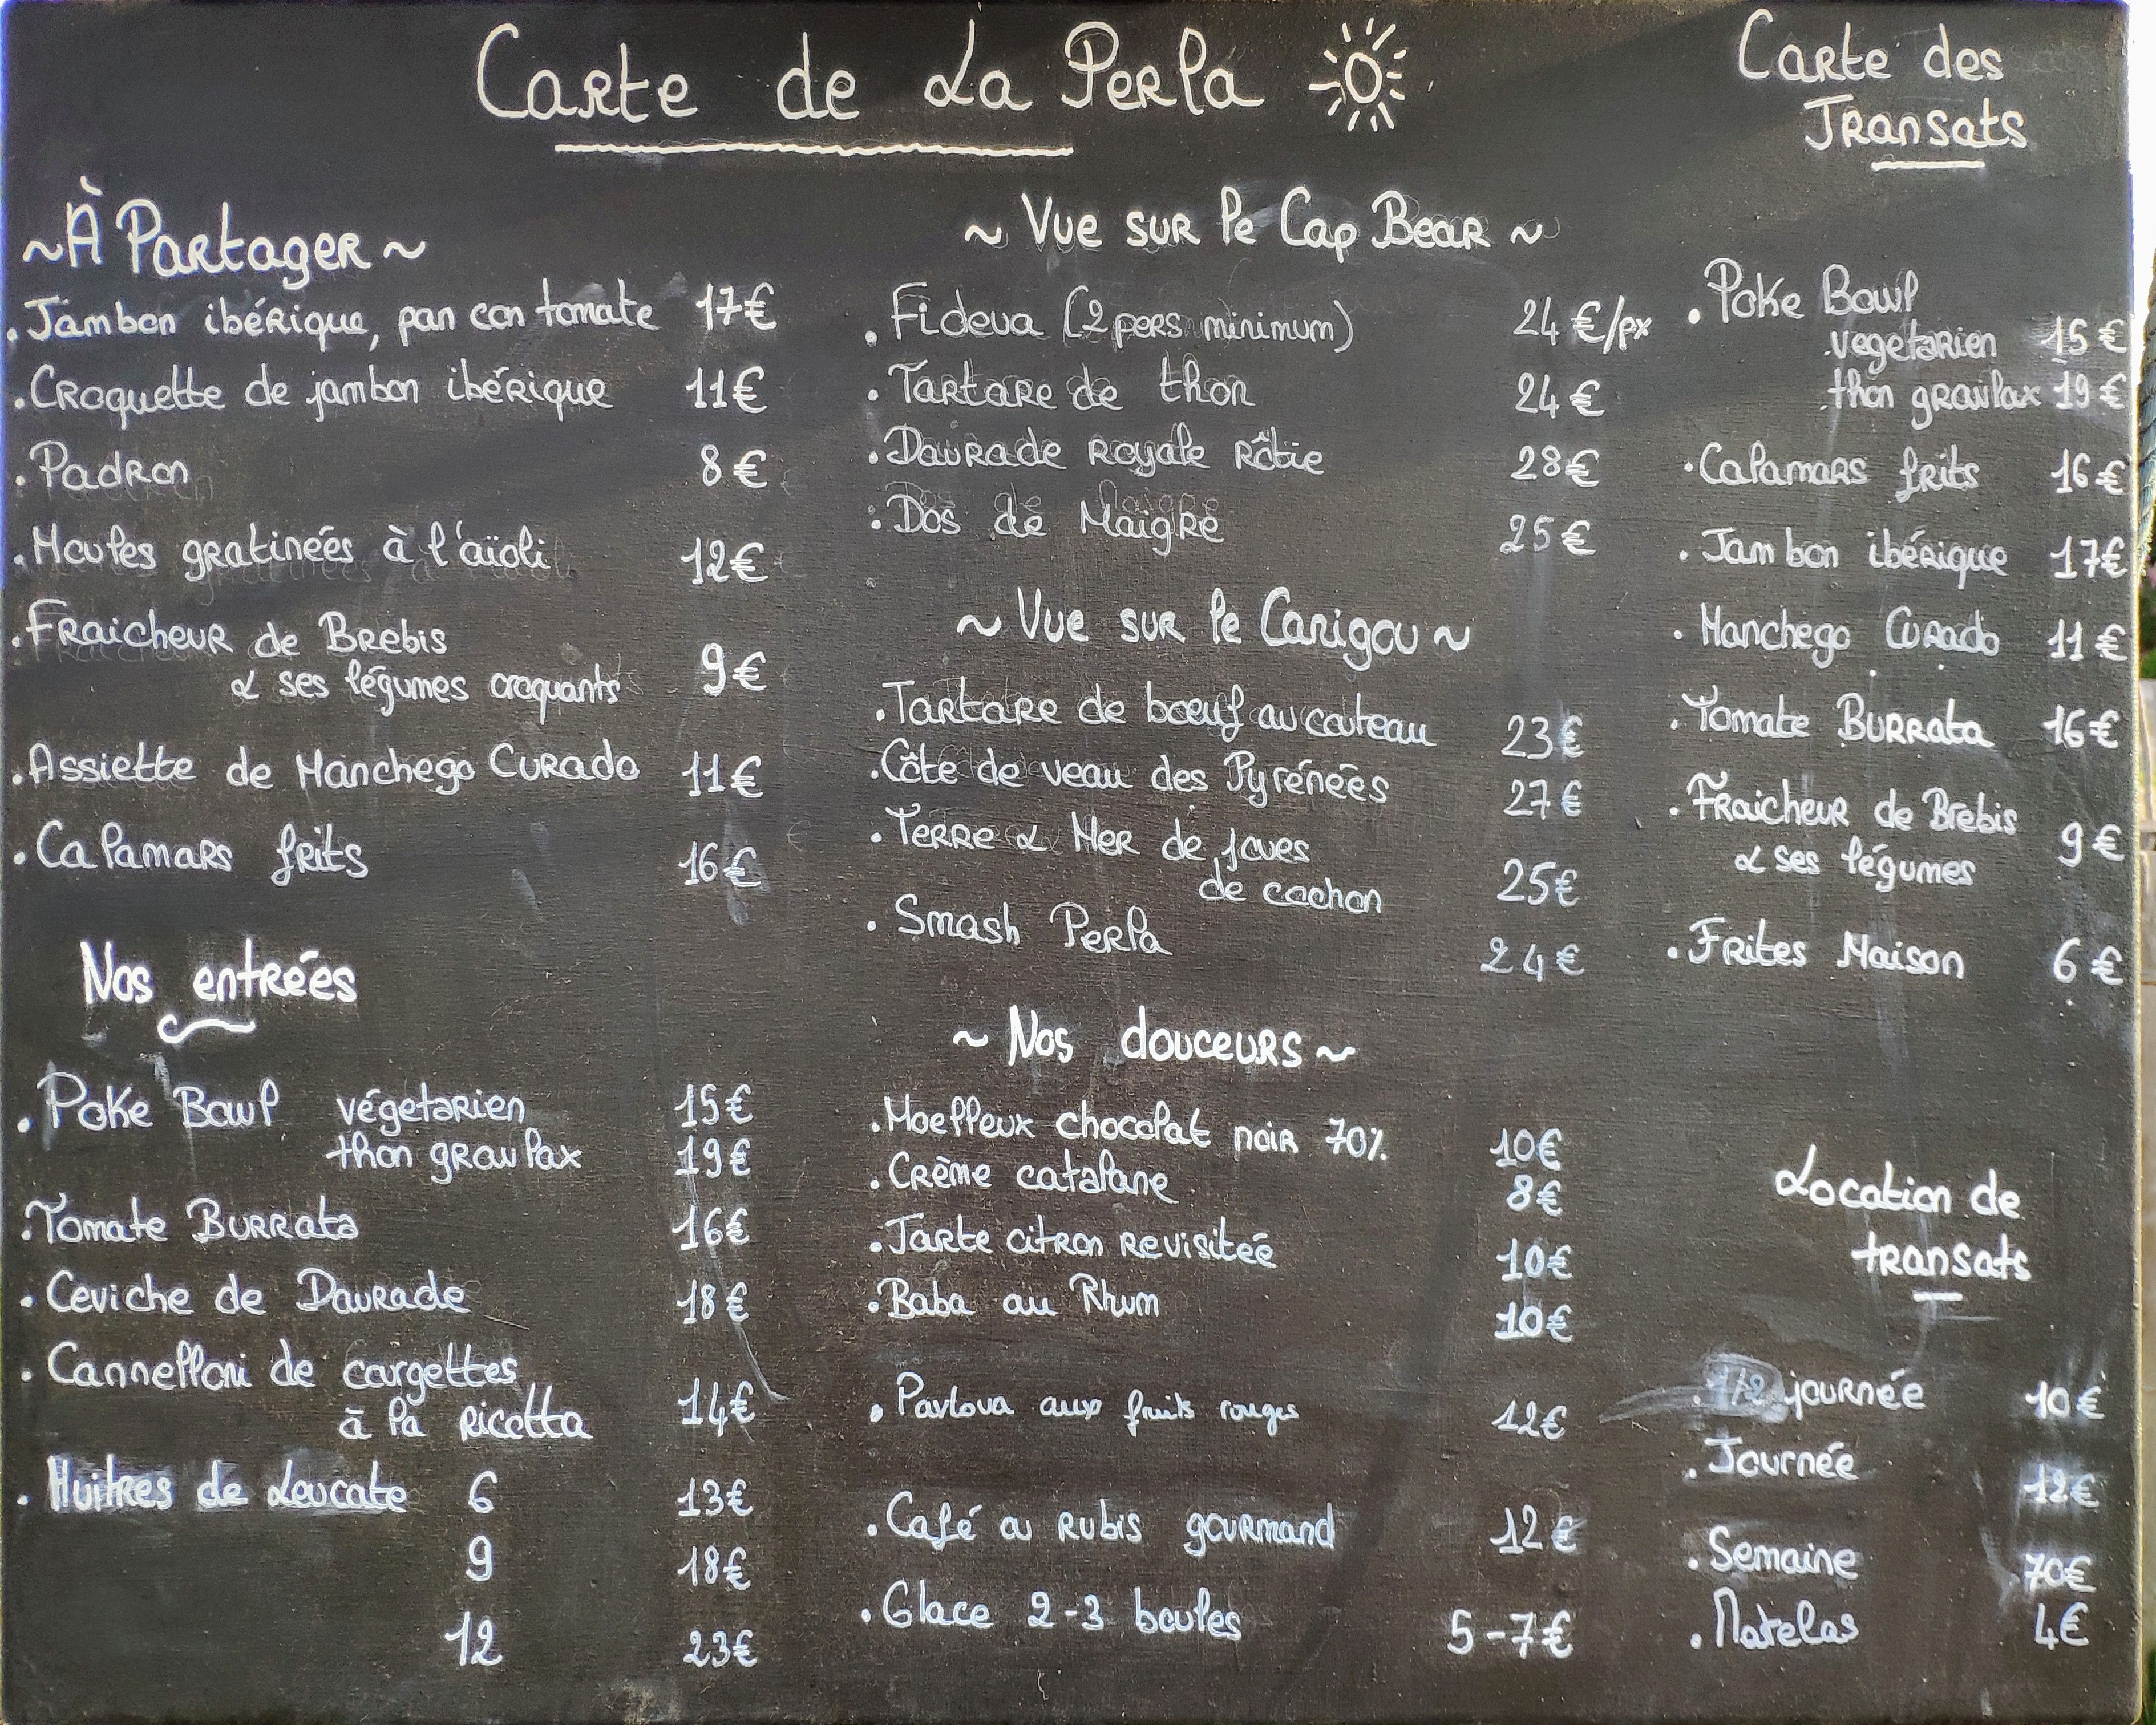 Carte de La Perla
~ À Partager ~
. Jambon ibérique, pan con tomate 17€
. Croquette de jambon ibérique 11€
. Padron 8€
. Moules gratinées à l'aïoli 12€
. Fraicheur de Brebis
& ses légumes croquants 9€
. Assiette de Manchego Curado 11€
. Calamars frits 16€
Nos entrées
. Poke Bowl végetarien 15€
thon gravlax 19€
. Tomate Burrata 16€
. Ceviche de Daurade 18€
. Cannelloni de courgettes
à la Ricotta 14€
. Huitres de Leucate 6 13€
9 18€
12 23€
~ Vue sur le Cap Bear ~
. Fideua (2 pers minimum) 24€/px
. Tartare de thon 24€
. Daurade royale rôtie 28€
. Dos de Maigre 25€
~ Vue sur le Canigou ~
. Tartare de bœuf au couteau 23€
. Côte de veau des Pyrénées 27€
. Terre & Mer de joues
de cochon 25€
. Smash Perla 24€
~ Nos douceurs ~
. Moelleux chocolat noir 70% 10€
. Crème catalane 8€
. Tarte citron revisitée 10€
. Baba au Rhum 10€
. Pavlova aux fruits rouges 12€
. Café ou rubis gourmand 12€
. Glace 2-3 boules 5-7€
Carte des
Transats
. Poke Bowl
. vegetarien 15€
. thon gravlax 19€
. Calamars frits 16€
. Jambon ibérique 17€
. Manchego Curado 11€
. Tomate Burrata 16€
. Fraicheur de Brebis
& ses légumes 9€
. Frites Maison 6€
Location de
transats
. 1/2 journée 10€
. Journée 12€
. Semaine 70€
. Matelas 4€